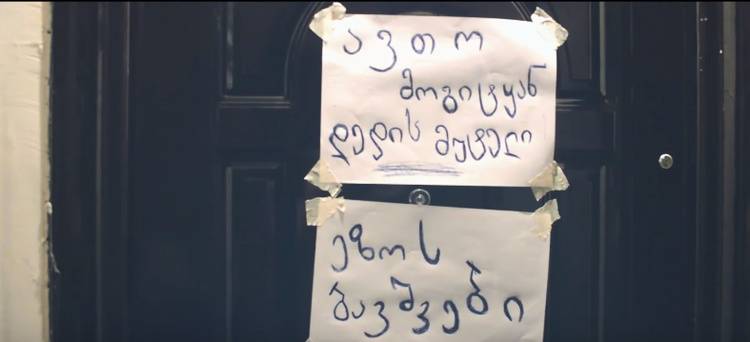 ავთო
მოგიტყან
დედის მუტელი
ეზოს
ბავშვები